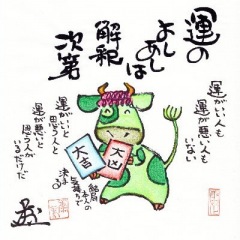 「運」の
よしあしは
解釈
次第
運がいい人も
運が悪い人も
いない
運がいいと
思う人と
運が悪いと
思う人が
いるだけだ
大吉
大凶
結局
本人の
気持ちで
決まる